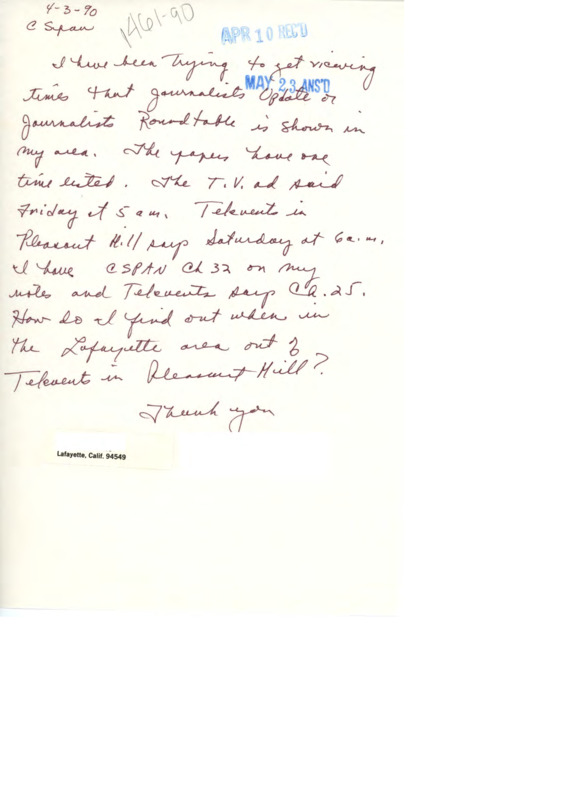 4-3-90
C Span
1461-90
APR 10 REC'D
I have been trying to get viewing
MAY 23 ANS'D
times that Journalists Update or
Journalists Roundtable is shown in
my area. The papers have one
time listed. The T.V. ad said
Friday at 5 am. Televents in
Pleasant Hill says Saturday at 6 a.m.
I have CSPAN Ch 32 on my
notes and Televents says Ch. 25.
How do I find out when in
the Lafayette area out of
Televents in Pleasant Hill?
Thank you
Lafayette, Calif. 94549